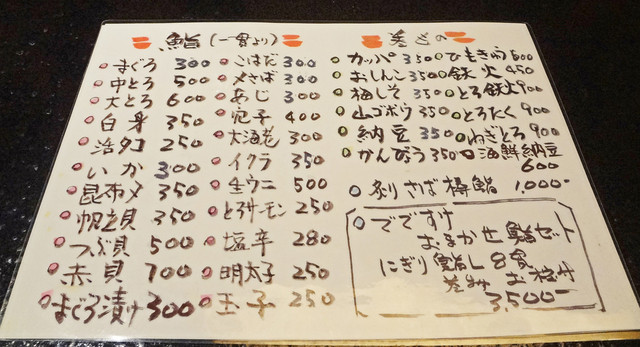 鮨(一貫より)
まぐろ 300
中とろ 500
大とろ 600
白身 350
活タコ 250
いか 300
昆布〆 350
帆立貝 350
つぶ貝 500
赤貝 700
まぐろ漬け 300
こはだ 300
〆さば 300
あじ 300
穴子 400
大海老 300
イクラ 350
生ウニ 500
とろサーモン 250
塩辛 280
明太子 250
玉子 250
巻もの
カッパ 350
おしんこ 350
梅しそ 350
山ゴボウ 350
納豆 350
かんぴょう 350
ひもきゅう 500
鉄火 450
とろ鉄火 900
とろたく 900
ねぎとろ 900
海鮮納豆
600
炙りさば棒鮨 1,000-
でですけ
おまかせ鮨セット
にぎり鮨 8貫
巻もの お椀付
3,500-